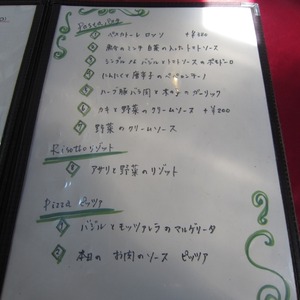 Pasta パスタ
1 ペスカトーレ ロッソ +¥300
2 鶏肉のミンチ 白菜の入ったトマトソース
3 シンプルな バジルとトマトソースのポモドーロ
4 にんにくと唐辛子のペペロンチーノ
5 ハーブ豚バラ肉と木の子のガーリック
6 カキと野菜のクリームソース +¥200
7 野菜のクリームソース
Risotto リゾット
8 アサリと野菜のリゾット
Pizza ピッツァ
1 バジルとモッツァレラのマルゲリータ
2 本日の お肉のソース ピッツァ